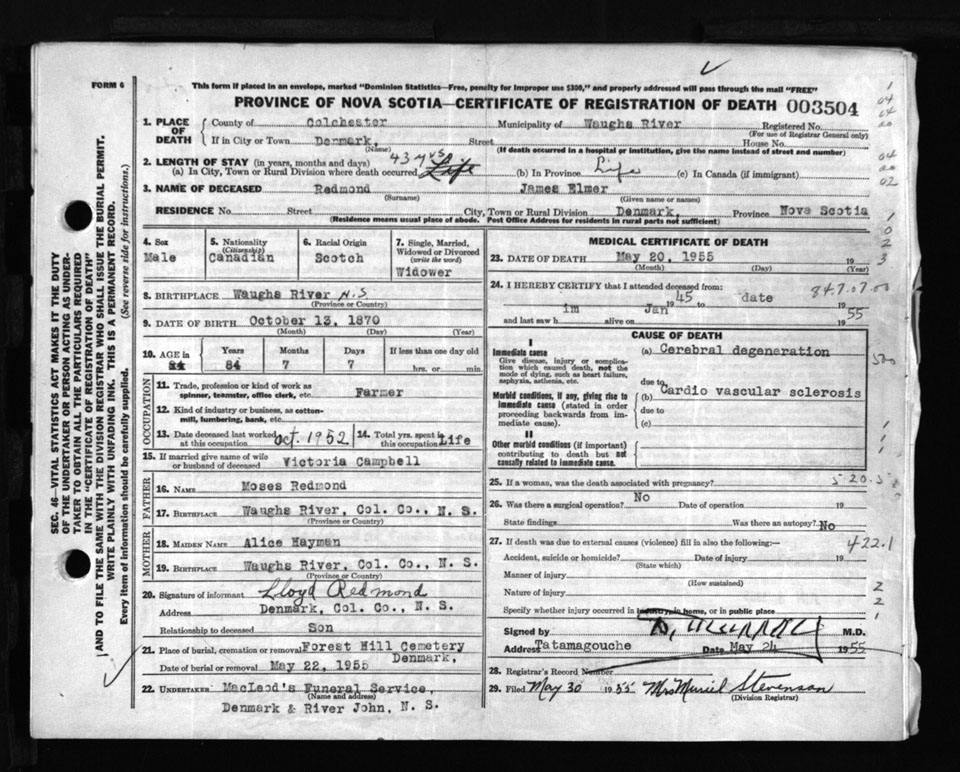 FORM 6
This form if placed in an envelope, marked "Dominion Statistics—Free, penalty for improper use $300," and properly addressed will pass through the mail "FREE"
PROVINCE OF NOVA SCOTIA—CERTIFICATE OF REGISTRATION OF DEATH 003504
1. PLACE OF DEATH
County of Colchester Municipality of Waughs River Registered No.
(For use of Registrar General only)
If in City or Town Denmark, Street House No.
(Name) (If death occurred in a hospital or institution, give the name instead of street and number)
2. LENGTH OF STAY (in years, months and days) 43 yrs
(a) In City, Town or Rural Division where death occurred Life (b) In Province Life (c) In Canada (if immigrant)
3. NAME OF DECEASED Redmond James Elmer
(Surname) (Given name or names)
RESIDENCE No. Street City, Town or Rural Division Denmark, Province Nova Scotia
(Residence means usual place of abode. Post Office Address for residents in rural parts not sufficient)
4. Sex
Male
5. Nationality
(Citizenship)
Canadian
6. Racial Origin
Scotch
7. Single, Married, Widowed or Divorced
(write the word)
Widower
8. BIRTHPLACE Waughs River N.S
(Province or Country)
9. DATE OF BIRTH October 13, 1870
(Month) (Day) (Year)
10. AGE in Years Months Days If less than one day old
84 7 7 hrs. or min.
OCCUPATION
11. Trade, profession or kind of work as spinner, teamster, office clerk, etc. Farmer
12. Kind of industry or business, as cotton-mill, lumbering, bank, etc.
13. Date deceased last worked at this occupation Oct. 1952
14. Total yrs. spent in this occupation Life
15. If married give name of wife or husband of deceased Victoria Campbell
FATHER
16. NAME Moses Redmond
17. BIRTHPLACE Waughs River, Col. Co., N. S.
(Province or Country)
MOTHER
18. MAIDEN NAME Alice Hayman
19. BIRTHPLACE Waughs River, Col. Co., N. S.
(Province or Country)
20. Signature of informant Lloyd Redmond
Address Denmark, Col. Co., N. S.
Relationship to deceased Son
21. Place of burial, cremation or removal Forest Hill Cemetery
Denmark,
Date of burial or removal May 22, 1955
22. UNDERTAKER MacLeod's Funeral Service,
(Name and address)
Denmark & River John, N. S.
MEDICAL CERTIFICATE OF DEATH
23. DATE OF DEATH May 20, 1955 19
(Month) (Day) (Year)
24. I HEREBY CERTIFY that I attended deceased from:
Jan 45 19 to date 19 55
and last saw h im alive on 19
84.7.07.00
CAUSE OF DEATH
I
Immediate cause
Give disease, injury or complication which caused death, not the mode of dying, such as heart failure, asphyxia, asthenia, etc.
(a) Cerebral degeneration
due to
Morbid conditions, if any, giving rise to immediate cause (stated in order proceeding backwards from immediate cause).
(b) Cardio vascular sclerosis
due to
(c)
II
Other morbid conditions (if important) contributing to death but not causally related to immediate cause.
25. If a woman, was the death associated with pregnancy?
26. Was there a surgical operation? No Date of operation 19
State findings Was there an autopsy? No
27. If death was due to external causes (violence) fill in also the following:— 422.1
Accident, suicide or homicide? Date of injury 19
(State which)
Manner of injury
(How sustained)
Nature of injury
Specify whether injury occurred in industry, in home, or in public place
Signed by D. Murray M.D.
Address Tatamagouche Date May 24 1955
28. Registrar's Record Number
29. Filed May 30 1955 Mrs Muriel Stevenson
(Division Registrar)
SEC. 46—VITAL STATISTICS ACT MAKES IT THE DUTY
OF THE UNDERTAKER OR PERSON ACTING AS UNDER-
TAKER TO OBTAIN ALL THE PARTICULARS REQUIRED
IN THE "CERTIFICATE OF REGISTRATION OF DEATH"
AND TO FILE THE SAME WITH THE DIVISION REGISTRAR WHO SHALL ISSUE THE BURIAL PERMIT.
WRITE PLAINLY WITH UNFADING INK. THIS IS A PERMANENT RECORD.
Every item of information should be carefully supplied. (See reverse side for instructions.)